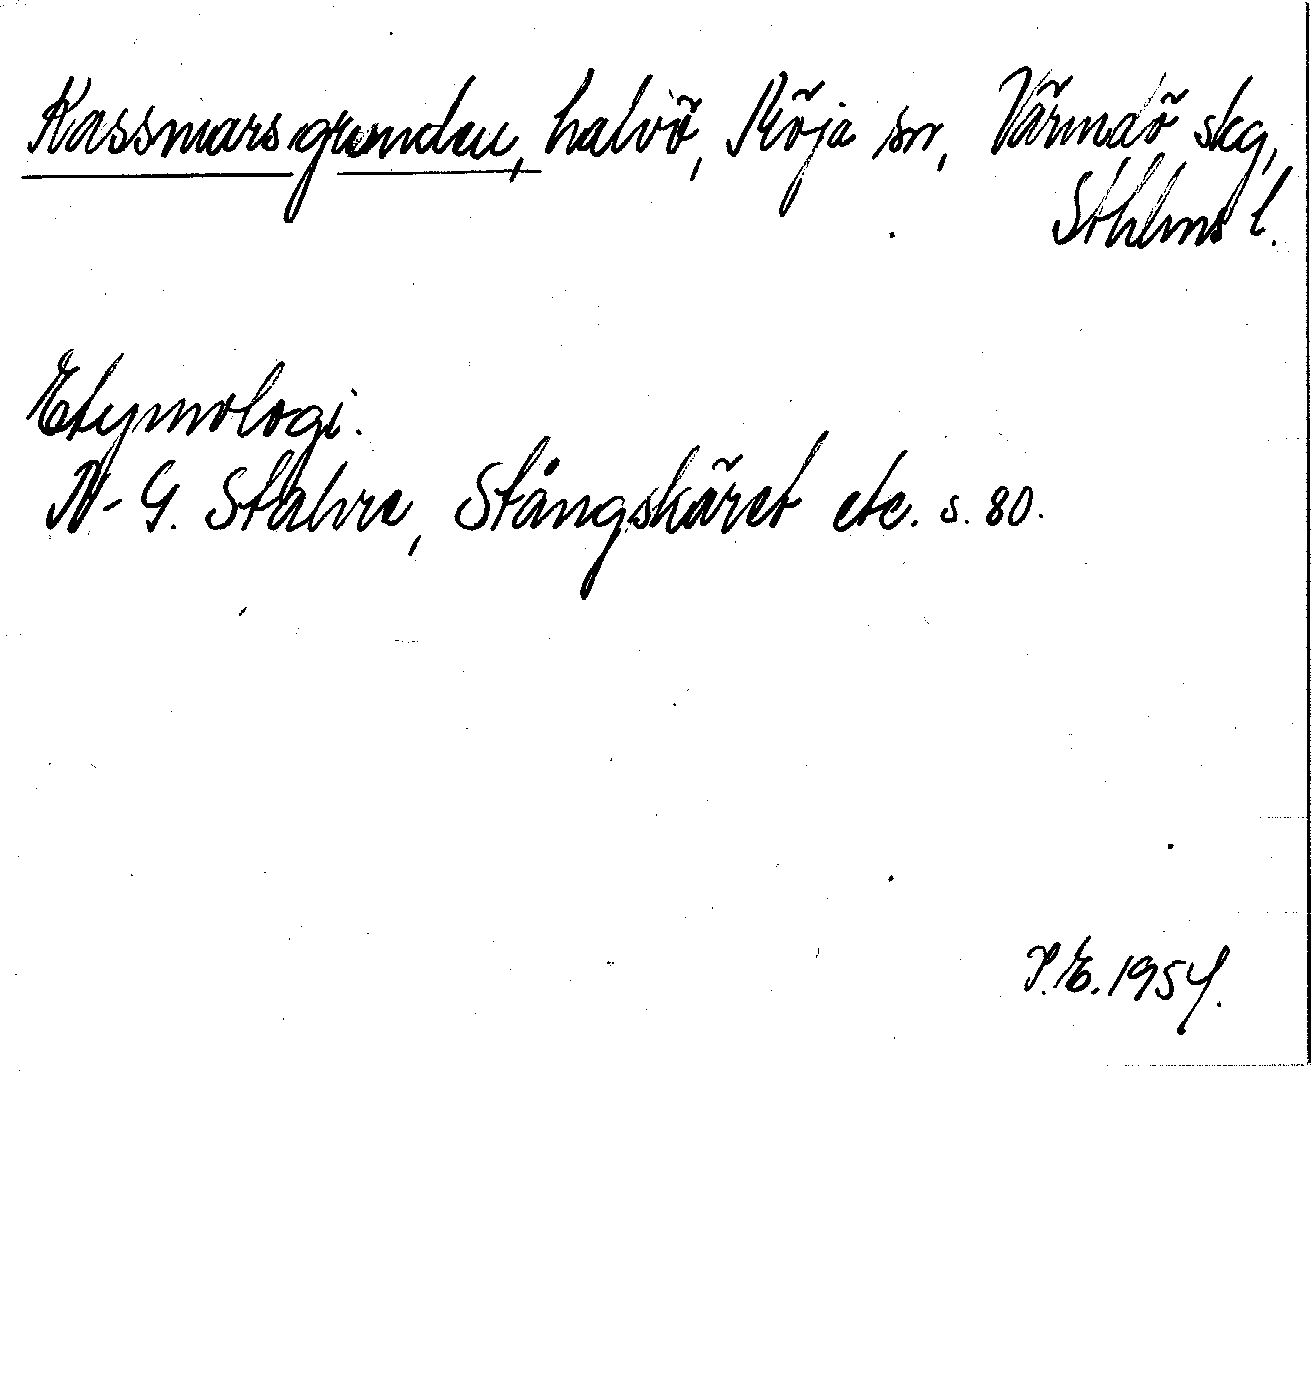 Kassmarsgrundau, halvö, Möja sn, Värmdö skg,
Sthlms l.
Etymologi.
N-G. Stahre, Stångskäret etc. s. 80.
P.E. 1954.